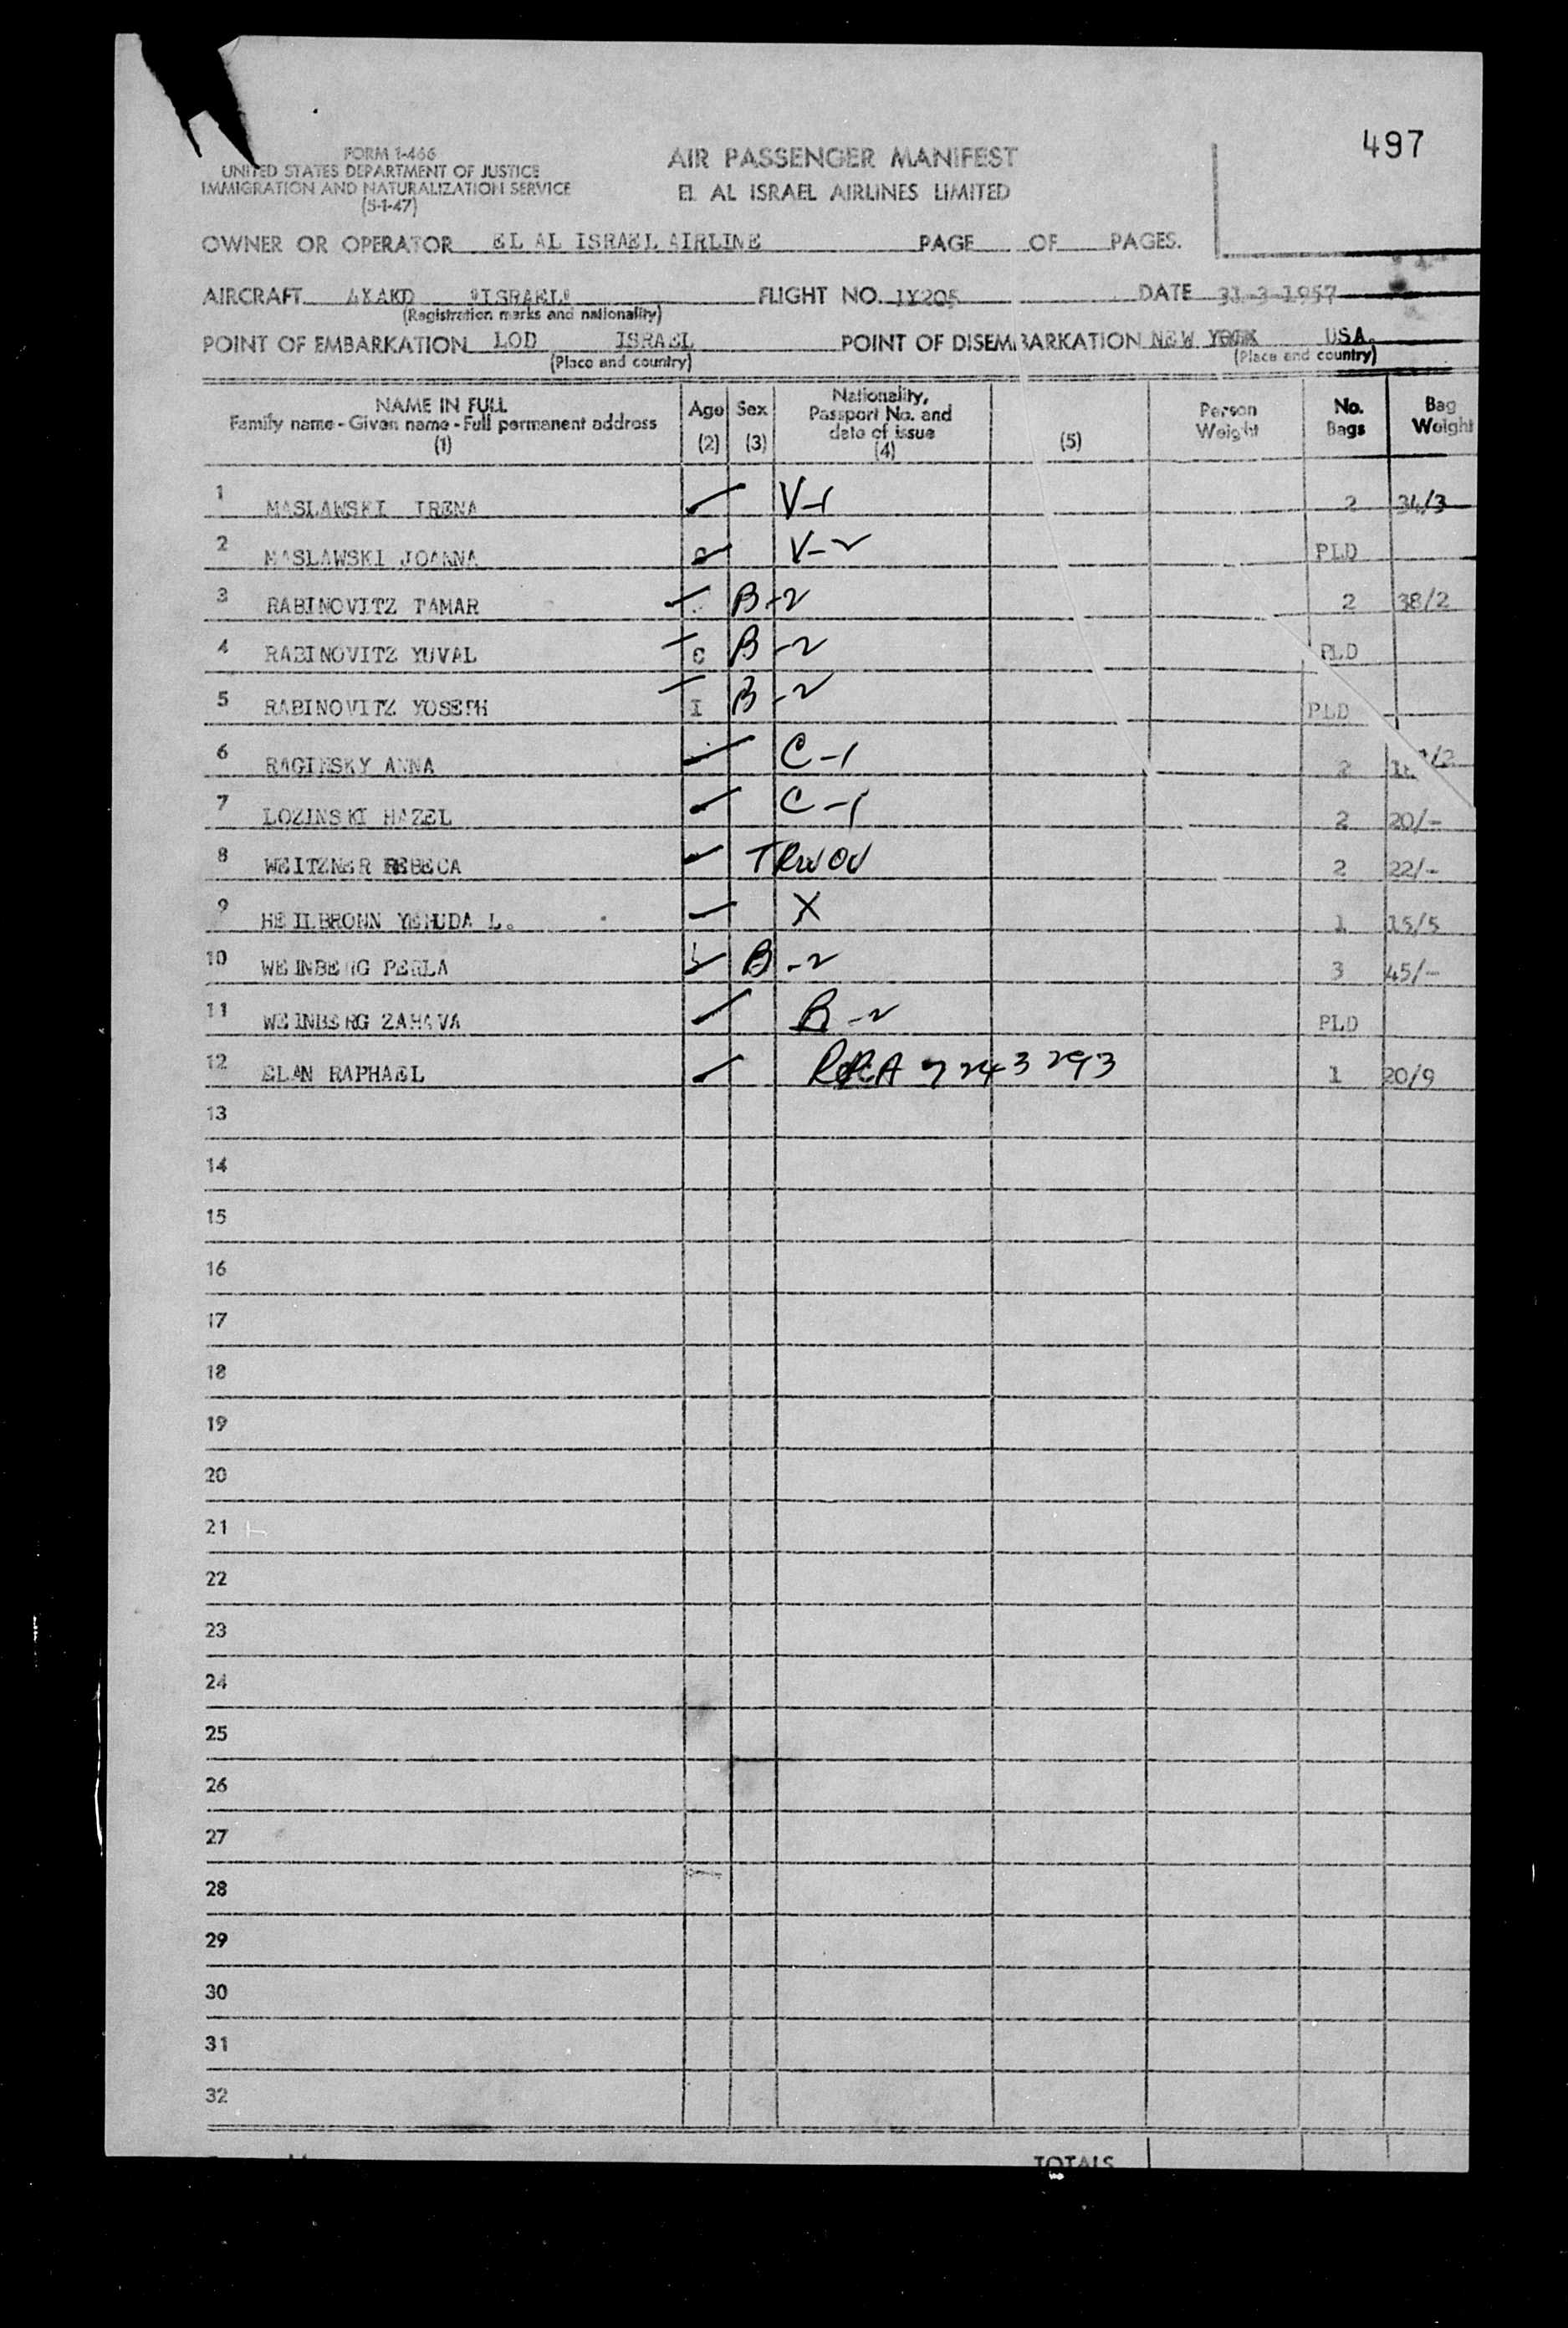 497
FORM I-466
UNITED STATES DEPARTMENT OF JUSTICE
IMMIGRATION AND NATURALIZATION SERVICE
(5-1-47)
AIR PASSENGER MANIFEST
EL AL ISRAEL AIRLINES LIMITED
OWNER OR OPERATOR EL AL ISRAEL AIRLINE PAGE OF PAGES.
AIRCRAFT 4XAKD "ISRAEL" FLIGHT NO. LY205 DATE 31-3-1957
(Registration marks and nationality)
POINT OF EMBARKATION LOD ISRAEL POINT OF DISEMBARKATION NEW YORK USA.
(Place and country) (Place and country)
NAME IN FULL Family name - Given name - Full permanent address (1) Age (2) Sex (3) Nationality, Passport No. and date of issue (4) (5) Person Weight No. Bags Bag Weight
1 MASLAWSKI IRENA V-1 2 34/3
2 MASLAWSKI JOANNA V-2 PLD
3 RABINOVITZ TAMAR B-2 2 38/2
4 RABINOVITZ YUVAL C B-2 PLD
5 RABINOVITZ YOSEPH I B-2 PLD
6 RAGINSKY ANNA C-1 2
7 LOZINSKI HAZEL C-1 2 20/-
8 WEITZNER REBECA TRWOV 2 22/-
9 HEILBRONN YEHUDA L. X 1 15/5
10 WEINBERG PERLA B-2 3 45/-
11 WEINBERG ZAHAVA B-2 PLD
12 ELAN RAPHAEL 7243293 1 20/9
13
14
15
16
17
18
19
20
21
22
23
24
25
26
27
28
29
30
31
32
TOTALS